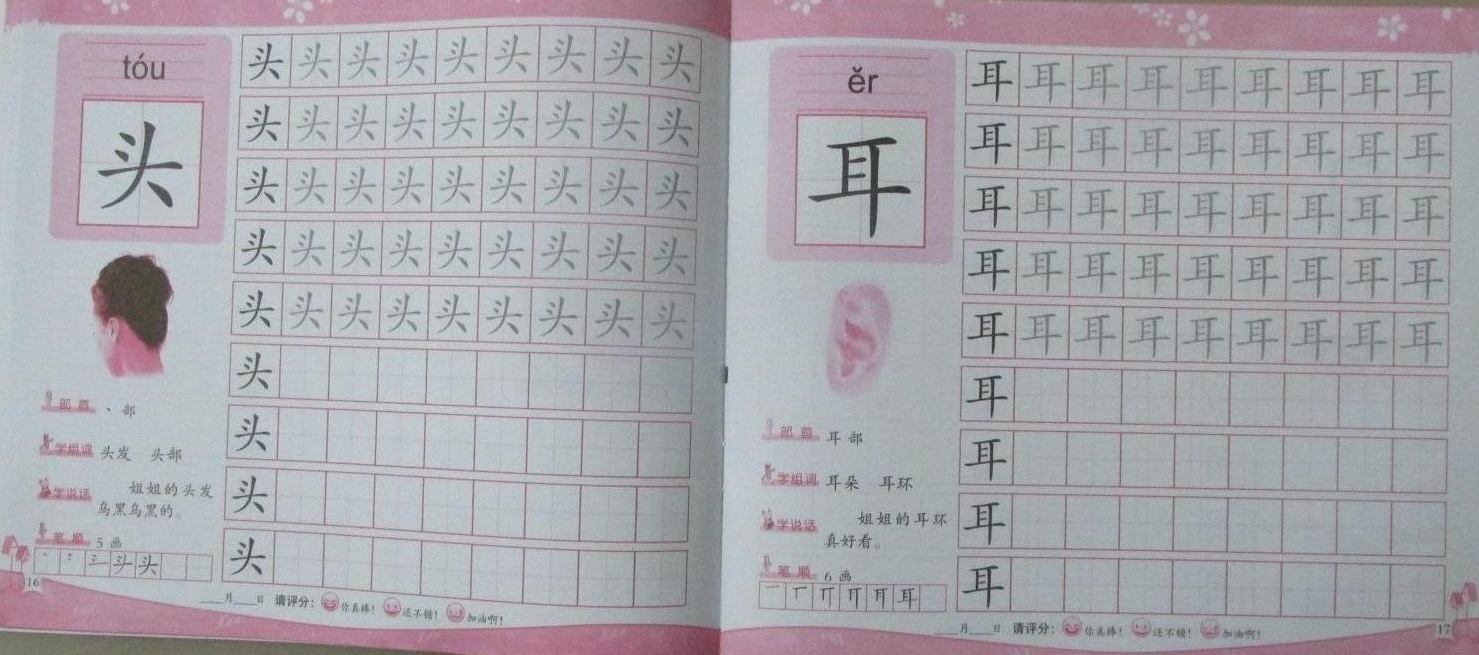 tóu
头
头头头头头头头头头
头头头头头头头头头
头头头头头头头头头
头头头头头头头头头
头头头头头头头头头
头
头
头
头
部首 丶部
学组词 头发 头部
学说话 姐姐的头发
乌黑乌黑的。
笔顺 5画
头
16
月 日 请评分: 你真棒! 还不错! 加油啊!
ěr
耳
耳耳耳耳耳耳耳耳耳
耳耳耳耳耳耳耳耳耳
耳耳耳耳耳耳耳耳耳
耳耳耳耳耳耳耳耳耳
耳耳耳耳耳耳耳耳耳
耳
耳
耳
耳
部首 耳部
学组词 耳朵 耳环
学说话 姐姐的耳环
真好看。
笔顺 6画
耳
月 日 请评分: 你真棒! 还不错! 加油啊!
17